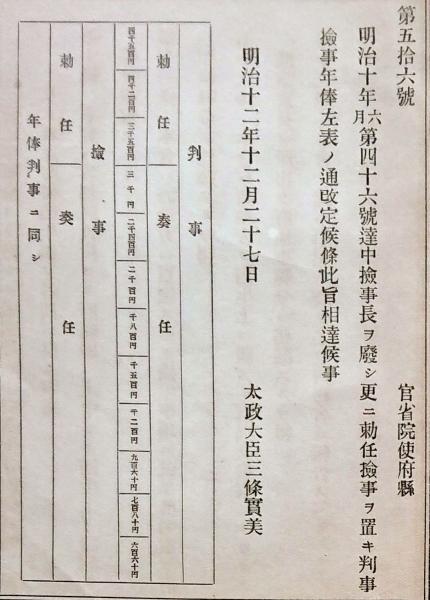 第五拾六號
官省院使府縣
明治十年六月第四十六號達中撿事長ヲ廢シ更ニ勅任撿事ヲ置キ判事
撿事年俸左表ノ通改定候條此旨相達候事
明治十二年十二月二十七日
太政大臣三條實美
判事
勅任 奏任
四千五百円 四千二百円 三千五百円 三千円 二千四百円 二千百円 千八百円 千五百円 千二百円 九百六十円 七百八十円 六百六十円
撿事
勅任 奏任
年俸判事ニ同シ